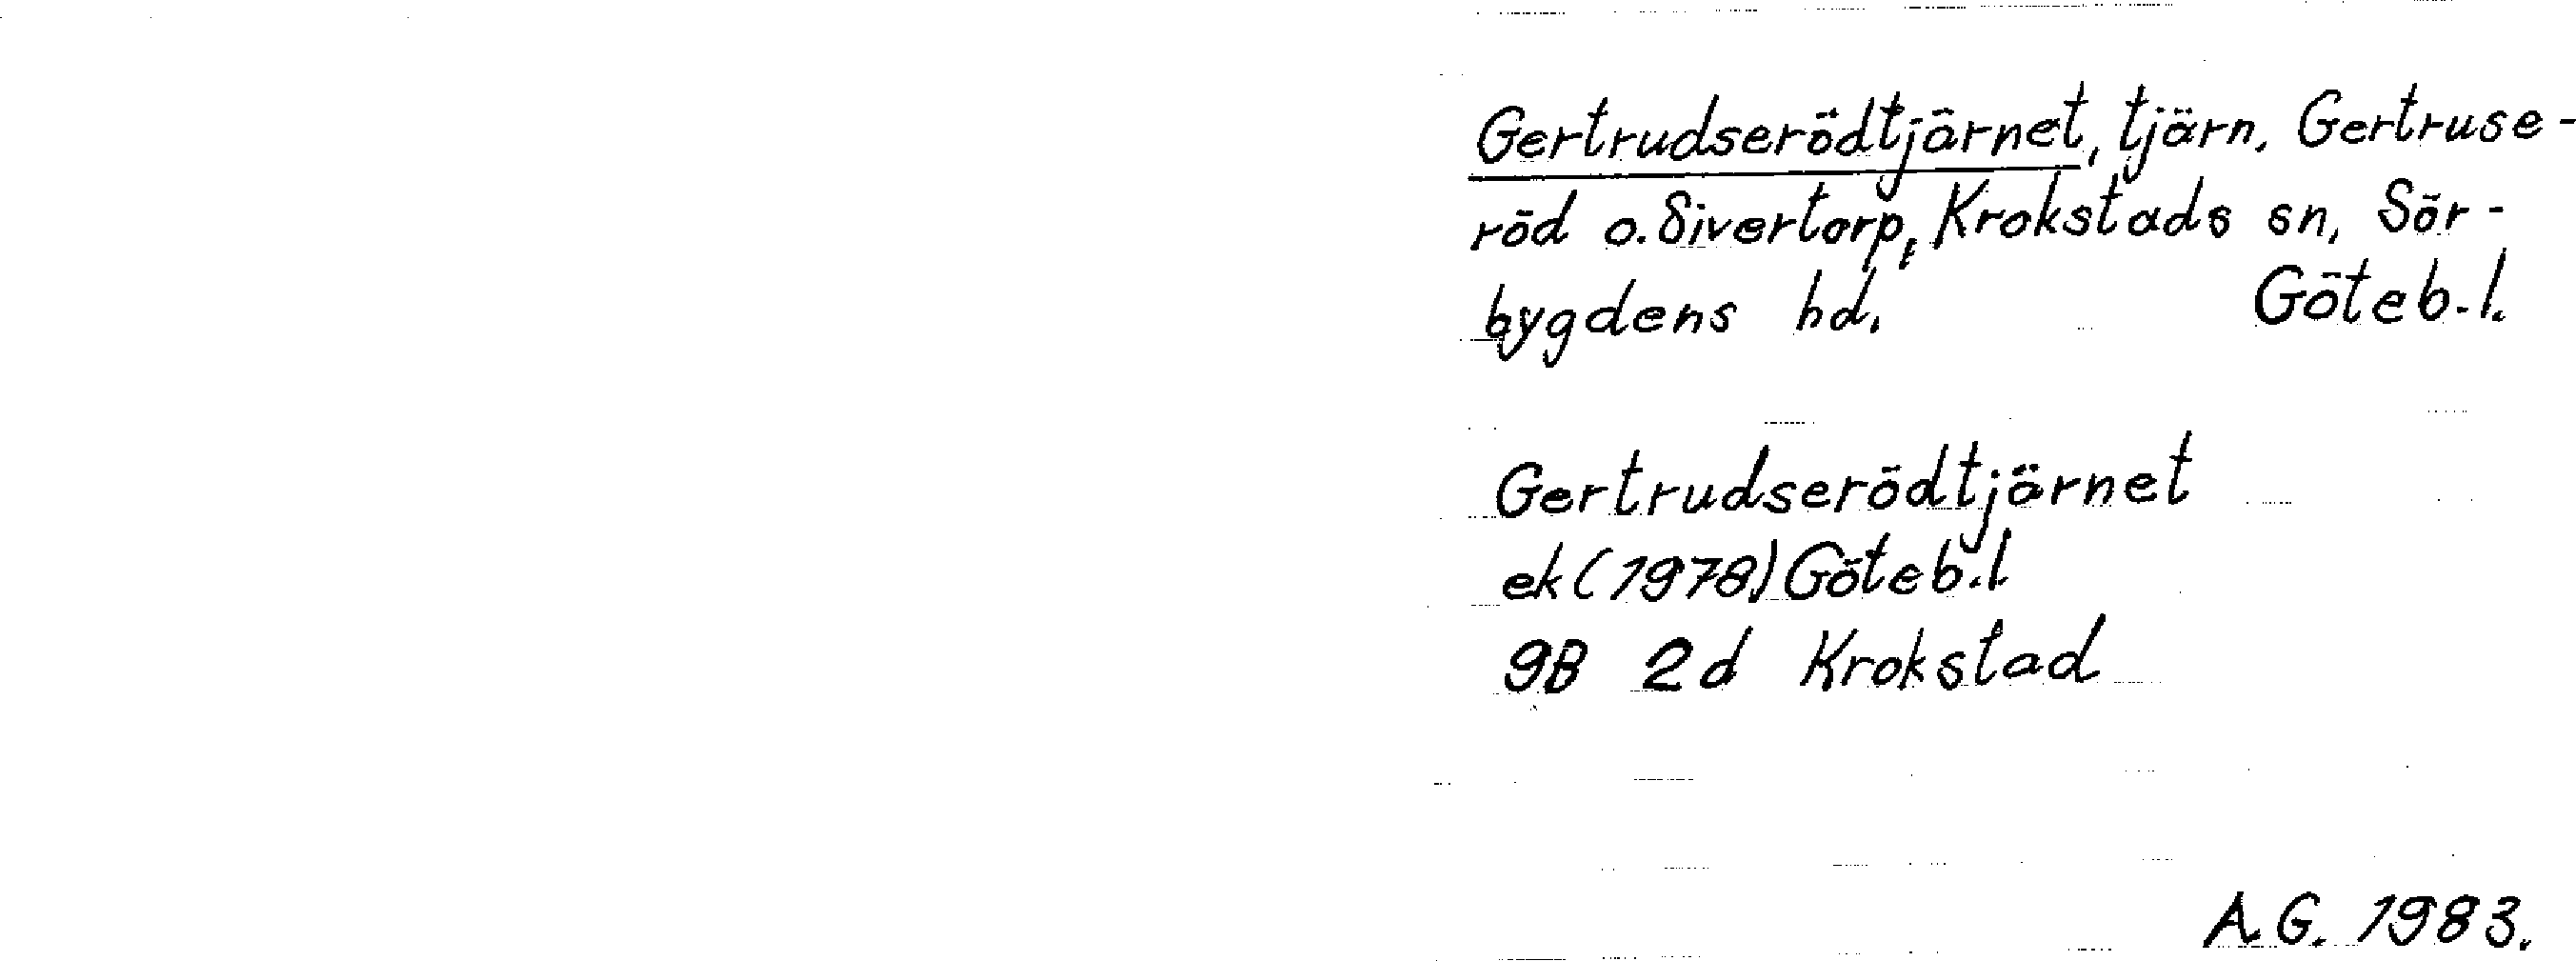 Gertrudserödtjärnet, tjärn, Gertruse-
röd o. Sivertorp, Krokstads sn, Sör-
bygdens hd. Göteb. l.
Gertrudserödtjärnet
ek (1978) Göteb. l
9B 2d Krokstad
A.G. 1983.